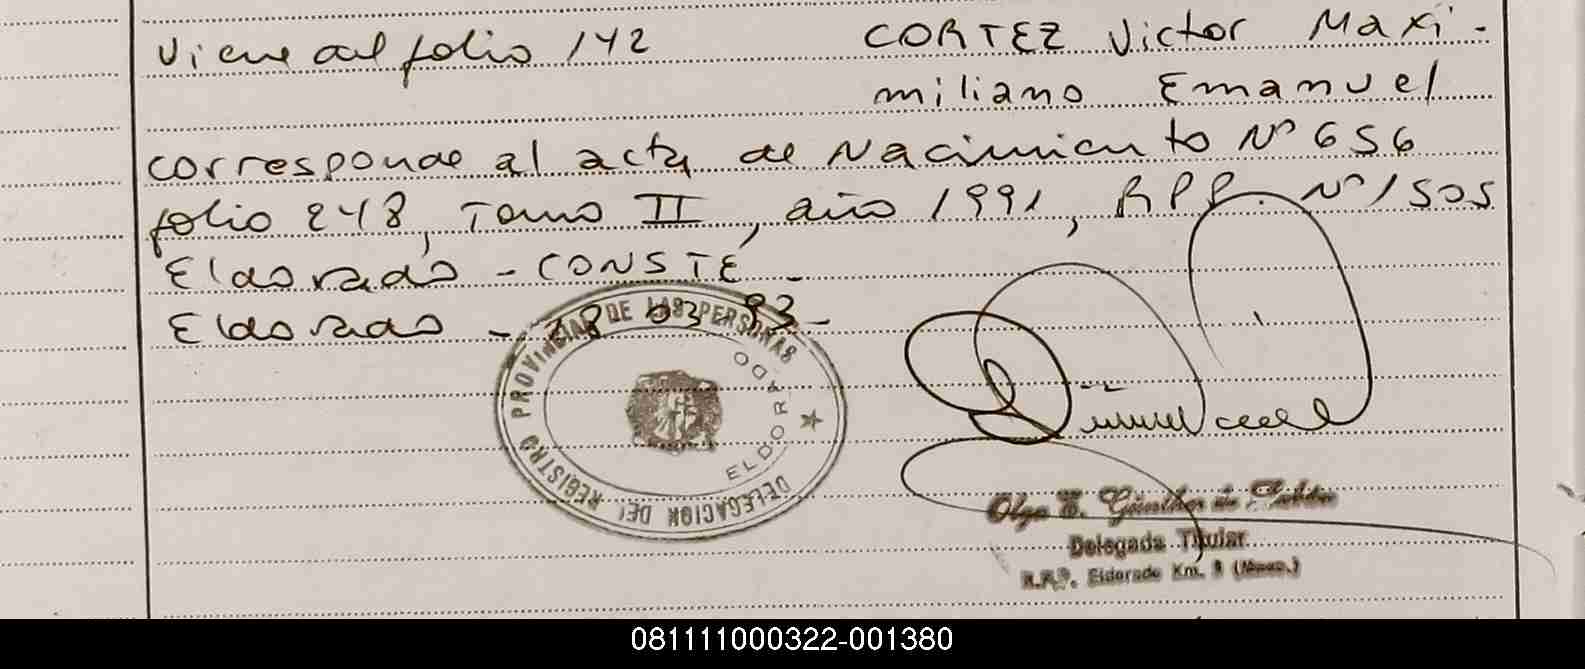 Viene al folio 142 CORTEZ Victor Maxi-
miliano Emanuel
corresponde al acta de Nacimiento Nº 656
folio 248, Tomo II, año 1991, RPP. Nº 1505
Eldorado - CONSTE -
Eldorado - 18 03 93 -
DELEGACION DEL REGISTRO PROVINCIAL DE LAS PERSONAS
ELDORADO
Olga E. Günther de
Delegada Titular
R.P.P. Eldorado Km. 9 (Mnes.)
081111000322-001380